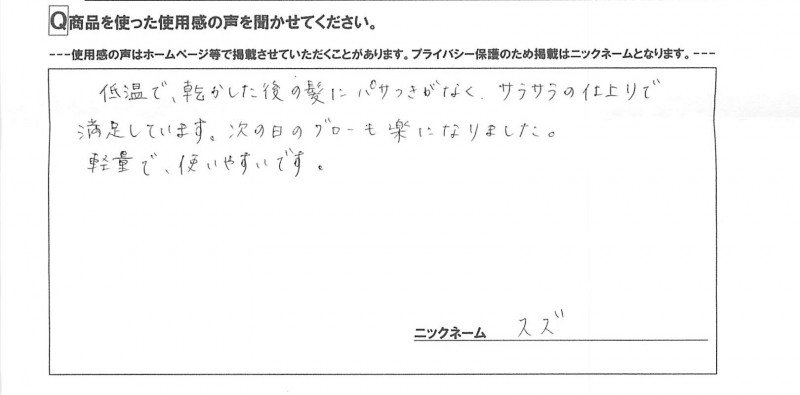 Q商品を使った使用感の声を聞かせてください。
---使用感の声はホームページ等で掲載させていただくことがあります。プライバシー保護のため掲載はニックネームとなります。---
低温で、乾かした後の髪にパサつきがなく、サラサラの仕上りで
満足しています。次の日のブローも楽になりました。
軽量で、使いやすいです。
ニックネーム スズ